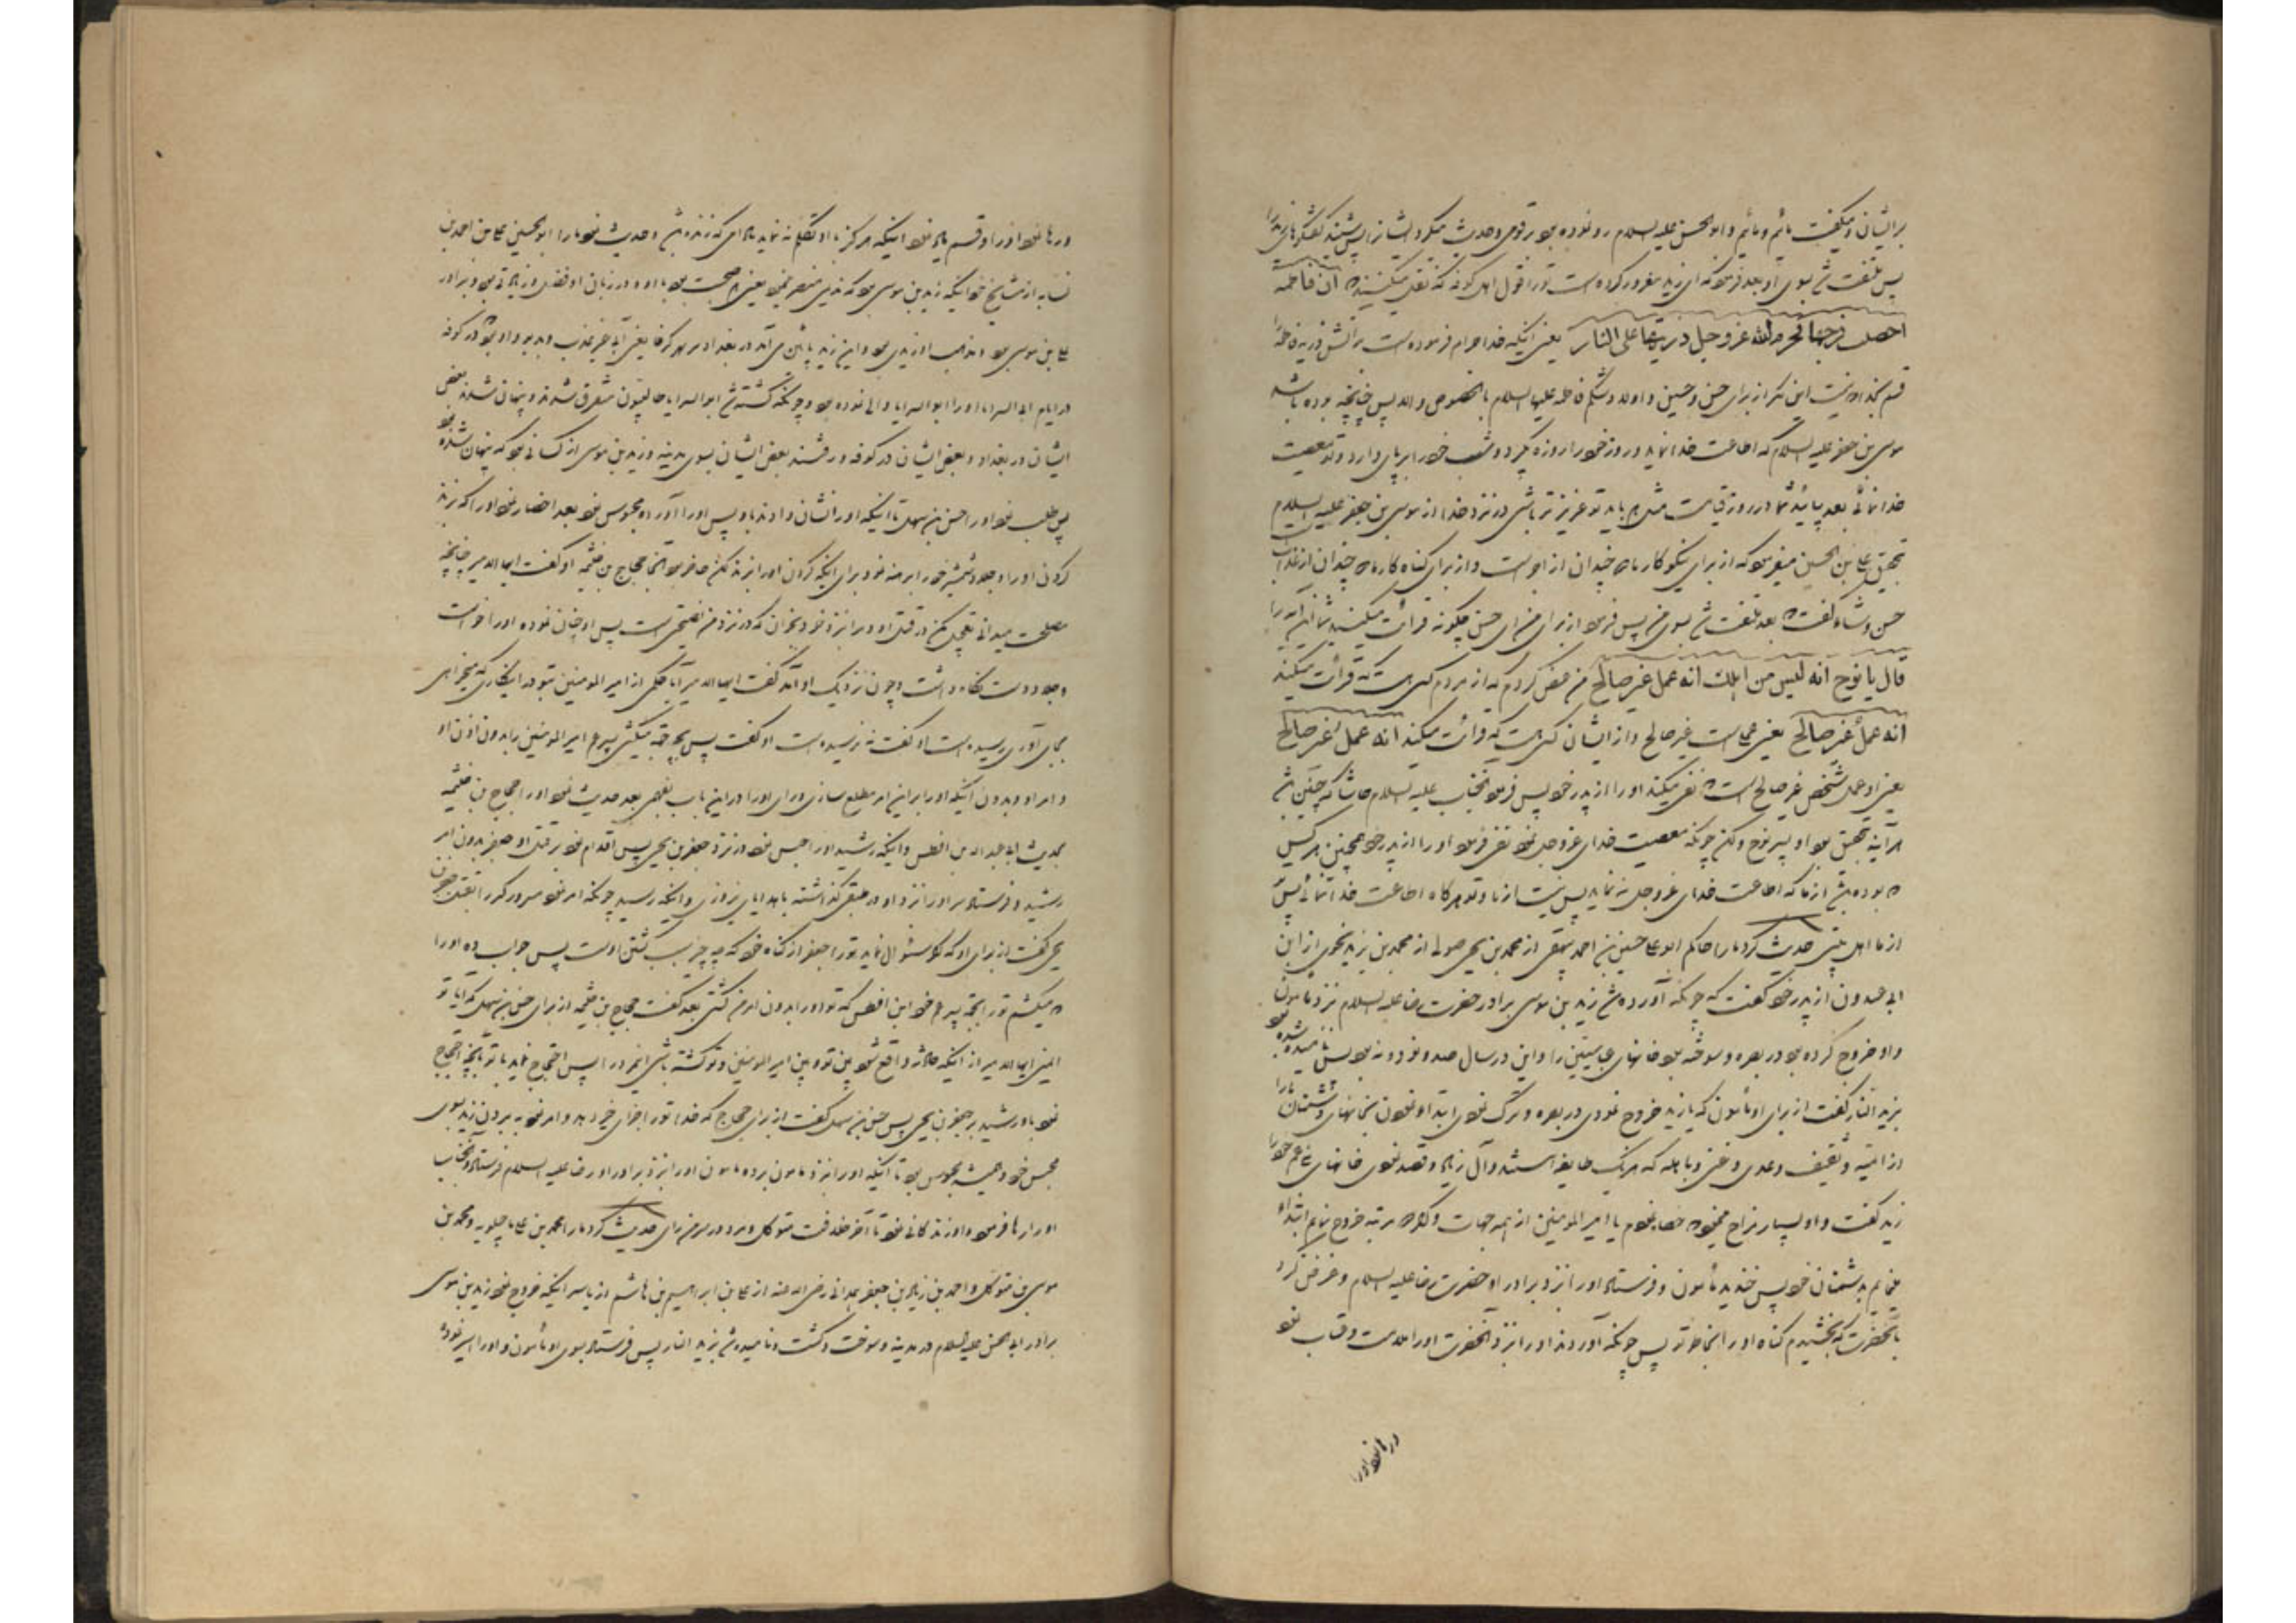 بر ایشان و میگفت مائیم و مائیم و ابو الحسن علیه السلام رو نموده بود بر قومی و حدیث میکرد ایشانرا پس شنید گفتگوهای زید را
پس ملتفت شد بسوی او بعد فرمود که ای زید مغرور کرده است تو را قول اهل کوفه که نقل میکنند ان فاطمه
احصنت فرجها فحرم الله عز وجل ذریتها علی النار یعنی اینکه خدا حرام فرموده است بر آتش ذریه فاطمه را
قسم بخدا که نیست این مگر از برای حسن و حسین و اولاد شکم فاطمه علیها السلام بالخصوص و الله پس چنانچه بوده باشد
موسی بن جعفر علیه السلام که اطاعت خدا نماید و روز خود را روزه بگیرد و شب خود را بر پای دارد و تو معصیت
خدا نمائی بعد بیائید شما در روز قیامت مثل هم باید تو عزیزتر باشی در نزد خدا از موسی بن جعفر علیه السلام
بتحقیق علی بن الحسین میفرمود که از برای نیکوکار ما دو چندان از اجر است و از برای گناه کار ما دو چندان از عذاب است
حسن وشاء گفت که بعد ملتفت شد بسوی من پس فرمود از برای من ای حسن چگونه قرائت میکنید شما این آیه را
قال یا نوح انه لیس من اهلک انه عمل غیر صالح من عرض کردم که از مردم کسی هست که قرائت میکند
انه عملٌ غیر صالح یعنی عملی است غیر صالح و از ایشان کسی هست که قرائت میکند انه عمل غیر صالح
یعنی او عمل شخص غیر صالح است که نفی میکند او را از پدر خود پس فرمود آنجناب علیه السلام حاشا که چنین باشد
هر آینه بتحقیق بود او پسر نوح ولکن چونکه معصیت خدای عز و جل نمود نفی فرمود او را از پدر خود همچنین هر کس
که بوده باشد از ما که اطاعت خدای عز و جل نه نماید پس نیست از ما و تو هرگاه اطاعت خدا نمائی پس
از ما اهل بیتی حدیث کرد ما را حاکم ابو علی حسین بن احمد بیهقی از محمد بن یحیی صولی از محمد بن یزید نحوی از ابن
ابی عبدون از پدر خود گفت که چونکه آورده شد زید بن موسی برادر حضرت رضا علیه السلام نزد مأمون
و او خروج کرده بود در بصره و سوخته بود خانهای عباسیین را و این در سال صد و نود و نه بود پس نامیده شده بود
بزید النار گفت از برای او مأمون که یا زید خروج نمودی در بصره و ترک نمودی ابتدا نمودن بخانهای دشمنان ما را
از امیه و ثقیف و عدی و غنی و باهله که هر یک طایفه استند و آل زیاد و قصد نمودی خانهای بنی عم خود را
زید گفت و او بسیار مزاح مینمود که خطا نمودم یا امیر المومنین از همه جهات و اگر مرتبه خروج نمایم ابتداء
مینمایم بدشمنان خود پس خندید مأمون و فرستاد او را نزد برادر او حضرت رضا علیه السلام و عرض کرد
بآنحضرت که بخشیدم گناه او را بخاطر تو پس چونکه آوردند او را نزد آنحضرت او را ملامت و عتاب نمود
و رها نمود او را
و رها نمود او را و قسم یاد نمود اینکه هرگز با او تکلم نه نماید مادامی که زنده باشد و حدیث نمود ما را ابو الحسین علی بن احمد بن
نسابه از مشایخ خود اینکه زید بن موسی بود که ندیم منتصر یعنی هم صحبت بود با او و در زبان او فضل و زیادتی بود و برادر
علی بن موسی بود و مذهب او زیدی بود و این زید پائین می آمد در بغداد بر نهر کرخایا و او بود در کوفه
در ایام ابی السرایا و او را ابو السرایا والی نموده بود و چونکه کشته شد ابو السرایا طالبیون متفرق شدند و پنهان شدند بعض
ایشان در بغداد و بعض ایشان در کوفه و رفتند بعض ایشان بسوی مدینه و زید بن موسی از کسانی بود که پنهان شده بود
پس طلب نمود او را حسن بن سهل تا اینکه او را نشان دادند باو پس او را آورد و محبوس نمود بعد احضار نمود او را که بزند
گردن او را و جلاد شمشیر خود را برهنه نمود برای اینکه گردن او را بزند لکن حاضر بود آنجا حجاج بن خثیمه او گفت ایها الامیر چنانچه
مصلحت میدانی تعجیل مکن در قتل او و مرا نزد خود بخوان که در نزد من نصیحتی است پس او چنان نموده او را خواست
و جلاد دست نگاه داشت و چون نزدیک او آمد گفت ایها الامیر آیا حکمی از امیر المومنین بتو در اینکاری که میخواهی
بجای آوری رسیده است او گفت نه نرسیده است او گفت پس بچه میکشی پسر عم امیر المومنین را بدون اذن او
و امر او و بدون اینکه او را بر این امر مطلع سازی و رای او را در این باب بفهمی بعد حدیث نمود او را حجاج بن خثیمه
بحدیث ابی عبد الله بن افطس و اینکه رشید او را حبس نمود در نزد جعفر بن یحیی پس اقدام نمود بر قتل او جعفر بدون امر
رشید و فرستاد سر او را نزد او در طبقی گذاشته با هدایای نوروزی و اینکه رشید چونکه امر نمود مسرور کبیر را بقتل جعفر بن
یحیی گفت از برای او که اگر سئوال نماید تو را جعفر از گناه خود که چه چیز سبب کشتن اوست پس جواب ده او را
که میکشم تو را بجهة پسر عم خود ابن افطس که تو او را بدون امر من کشتی بعد گفت حجاج بن خثیمه از برای حسن بن سهل که آیا تو
ایمنی ایها الامیر از اینکه حادثه واقع شود بین تو و بین امیر المومنین و تو کشته باشی این مرد را پس احتجاج نماید با تو بآنچه احتجاج
نمود باو رشید بر جعفر بن یحیی پس حسن بن سهل گفت از برای حجاج که خدا تو را جزای خیر دهد و امر نمود به بردن زید بسوی
محبس خود و همیشه محبوس بود تا اینکه او را نزد مامون برده مامون او را نزد برادر او رضا علیه السلام فرستاد و آنجناب
او را رها فرمود و او زندگانی نمود تا آخر خلافت متوکل و مرد در سر من رای حدیث کرد ما را محمد بن علی ماجیلویه و محمد بن
موسی بن متوکل و احمد بن زیاد بن جعفر همدانی رضی الله عنه از علی بن ابراهیم بن هاشم از یاسر اینکه خروج نمود زید بن موسی
برادر ابی الحسن علیه السلام در مدینه و سوخت و کشت و نامیده شد بزید النار پس فرستاد بسوی او مأمون و او را اسیر نموده